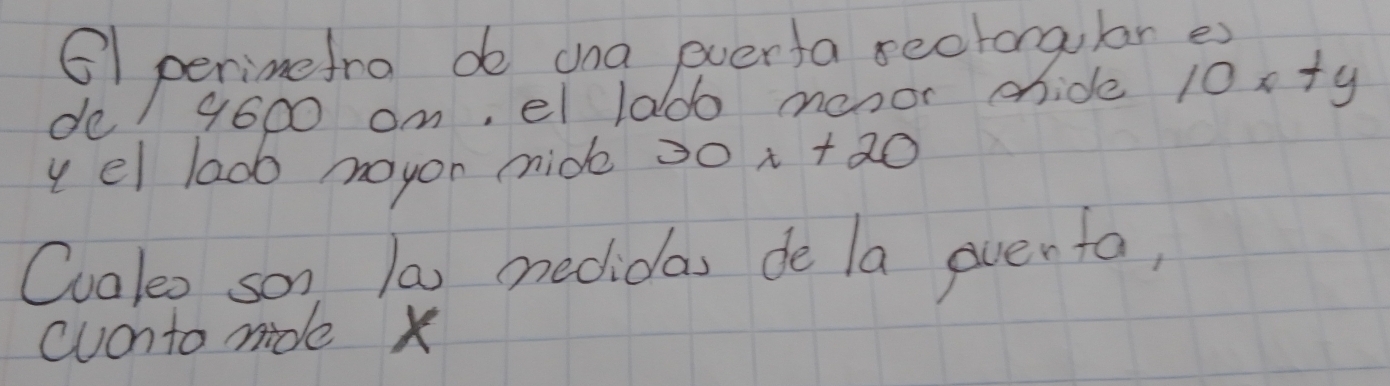 El perimetro de una puerta rectangular es
de 4600 cm. el lado menor mide 10x+y
y el lado mayor mide 30x+20
Cuales son las medidas de la puerta,
cuanto mide X